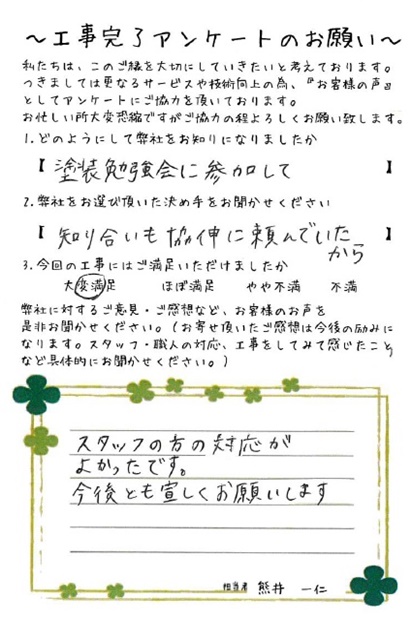 ～工事完了アンケートのお願い～
私たちは、このご縁を大切にしていきたいと考えております。
つきましては更なるサービスや技術向上の為、『お客様の声』
としてアンケートにご協力を頂いております。
お忙しい所大変恐縮ですがご協力の程よろしくお願い致します。
1.どのようにして弊社をお知りになりましたか
【 塗装勉強会に参加して 】
2.弊社をお選び頂いた決め手をお聞かせください
【 知り合いも協伸に頼んでいた 】
から
3.今回の工事にはご満足いただけましたか
大変満足 ほぼ満足 やや不満 不満
弊社に対するご意見・ご感想など、お客様のお声を
是非お聞かせください。(お寄せ頂いたご感想は今後の励みに
なります。スタッフ・職人の対応、工事をしてみて感じたこと
など具体的にお聞かせください。)
スタッフの方の対応が
よかったです。
今後とも宜しくお願いします
担当者 熊井 一仁